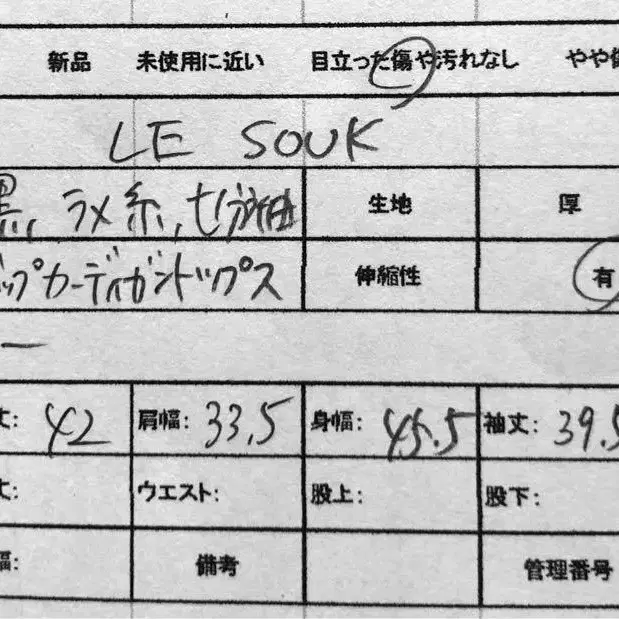 新品 未使用に近い 目立った傷や汚れなし やや傷
LE SOUK
黒, ラメ糸, 七分袖 生地 厚
ップカーディガントップス 伸縮性 有
ー
丈: 42 肩幅: 33.5 身幅: 45.5 袖丈: 39.5
丈: ウエスト: 股上: 股下:
幅: 備考 管理番号